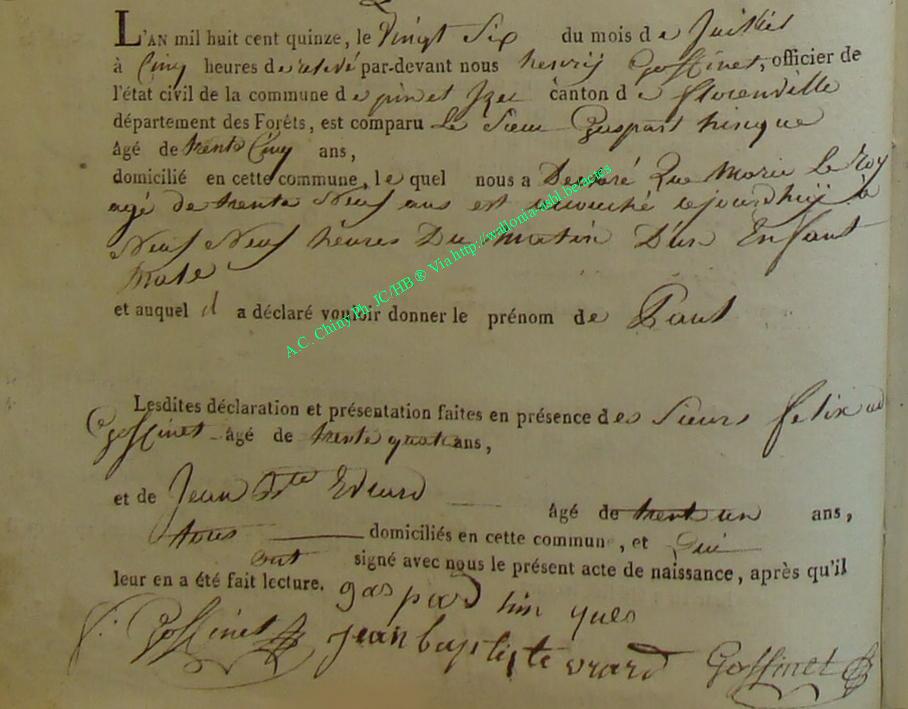 L'AN mil huit cent quinze, le Vingt Six du mois de Juillet
à Cinq heures de relevé par-devant nous henrij Goffinet, officier de
l'état civil de la commune de pin et Izel canton de florenville
département des Forêts, est comparu Le Sieur Gaspart hinque
âgé de trente Cinq ans,
domicilié en cette commune, le quel nous a Declaré Que Marie Le Roy
agé de trente Neuf ans est accouché ajourdhuij à
Neuf Neuf heures Du matin D'un Enfant
Male
et auquel il a déclaré vouloir donner le prénom de Paul
Lesdites déclaration et présentation faites en présence des Sieurs felix
Goffinet âgé de trente quatre ans,
et de Jean Bte Evrard âgé de trent un ans,
tous domiciliés en cette commune, et Qui
ont signé avec nous le présent acte de naissance, après qu'il
leur en a été fait lecture. gaspard hinques
f: Goffinet jean baptiste evrard Goffinet
A.C. Chiny Ph. JC/HB ® Via http://wallonia-asbl.be.actes